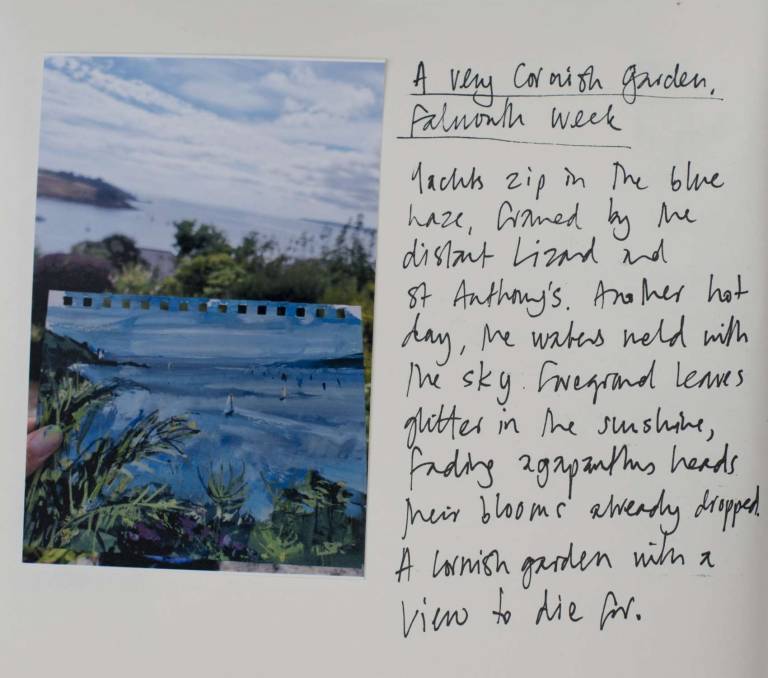 A very Cornish garden,
Falmouth Week
Yachts zip in the blue
haze, framed by the
distant Lizard and
St Anthony's. Another hot
day, the waters meld with
the sky. Foreground leaves
glitter in the sunshine,
fading agapanthus heads
their blooms already dropped.
A Cornish garden with a
view to die for.